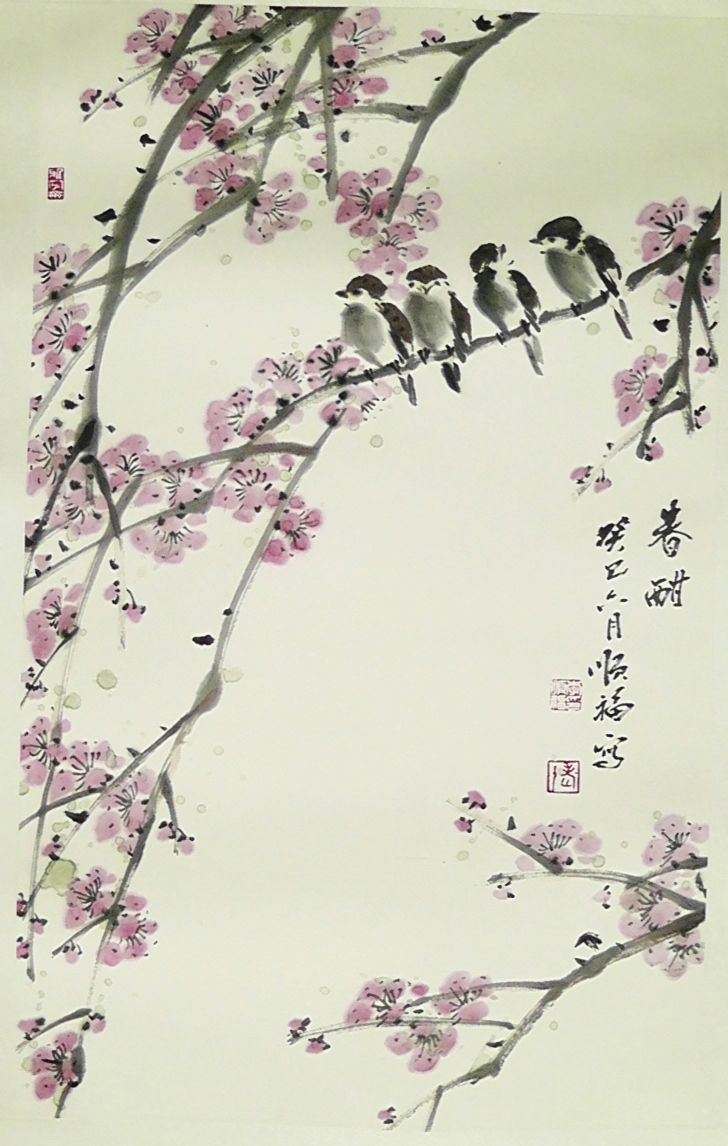 春酣
癸巳六月顺福写